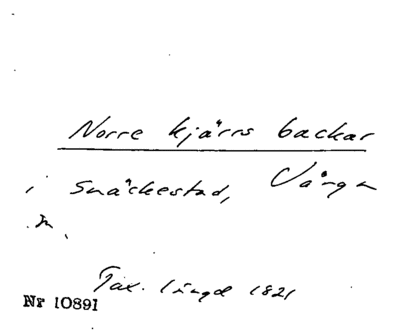 Norre kjärrs backar
i Snäckestad, Vånga
sn.
Tax. längd 1821
Nr 10891